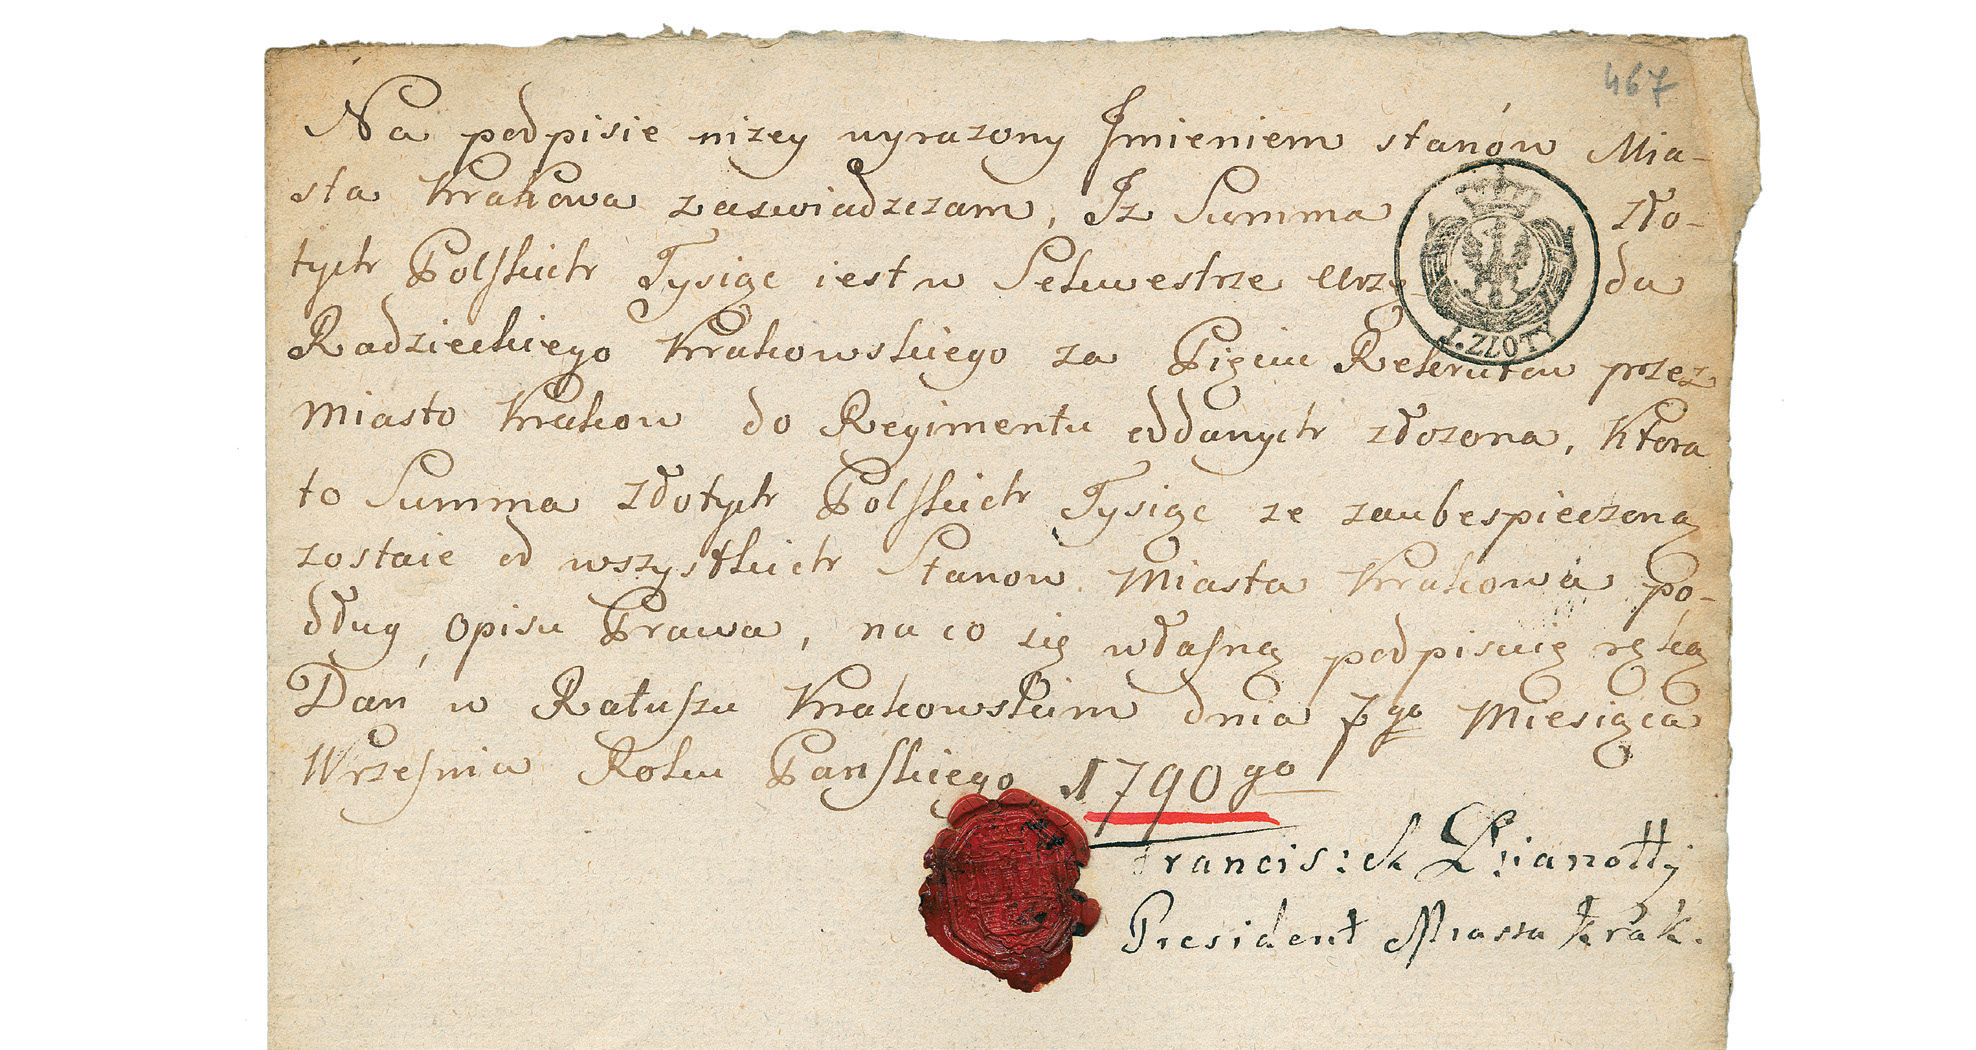 467
Na podpisie nizey wyrazony Jmieniem stanów Mia-
sta Krakowa zaswiadzczam, Jz Summa zło-
tych Polskich Tysiąc iest w Sekwestrze Urzę- du
Radzieckiego Krakowskiego za Pięciu Rekrutow przez
Miasto Krakow do Regimentu oddanych złozona, Ktora
to Summa złotych Polskich Tysiąc ze zaubespieczoną
zostaie od wszystkich Stanow Miasta Krakowa po-
dług opisu Prawa, na co się własną podpisuię ręką
Dan w Ratuszu Krakowskim dnia 7go Miesiąca
Wrzesnia Roku Pańskiego 1790go
Franciszek
President Miasta Krak.
1. ZŁOTY